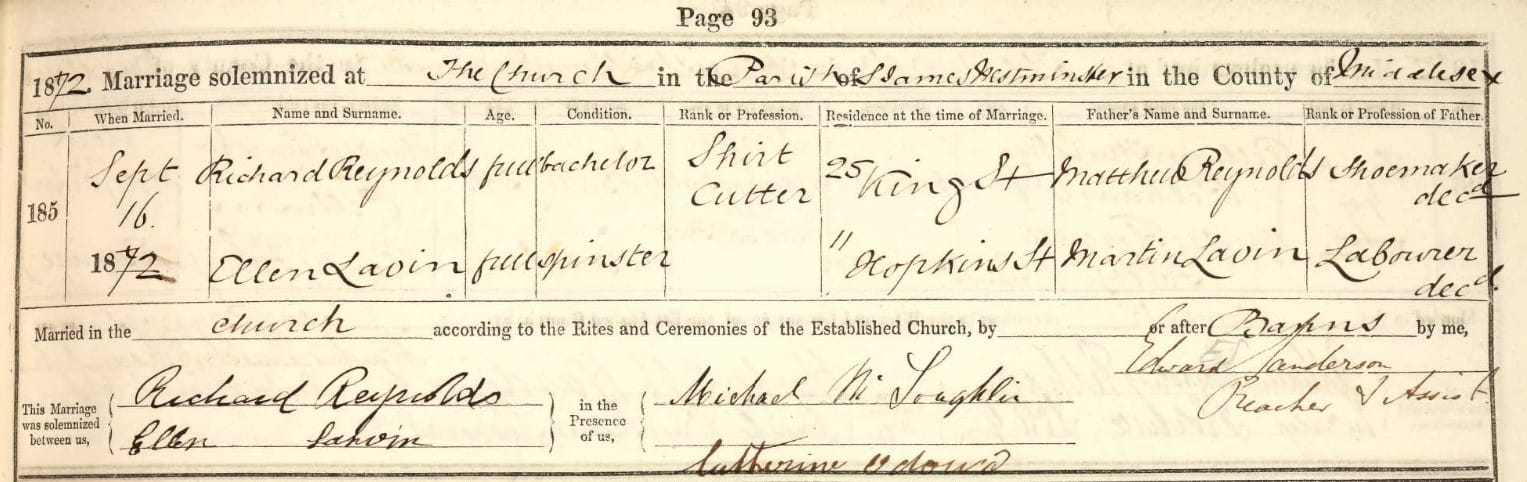 Page 93
1872 Marriage solemnized at The Church in the Parish of S James Westminster in the County of Middlesex
No. When Married. Name and Surname. Age. Condition. Rank or Profession. Residence at the time of Marriage. Father's Name and Surname. Rank or Profession of Father.
185 Sept 16 1872 Richard Reynolds full bachelor Shirt Cutter 25 King St Matthew Reynolds Shoemaker decd
Ellen Lavin full spinster 11 Hopkins St Martin Lavin Labourer decd.
Married in the church according to the Rites and Ceremonies of the Established Church, by or after Banns by me,
Edward Sanderson
Preacher & Assist.
This Marriage was solemnized between us, Richard Reynolds in the Presence of us, Michael Mc Loughlin
Ellen Larvin Catherine Odowd